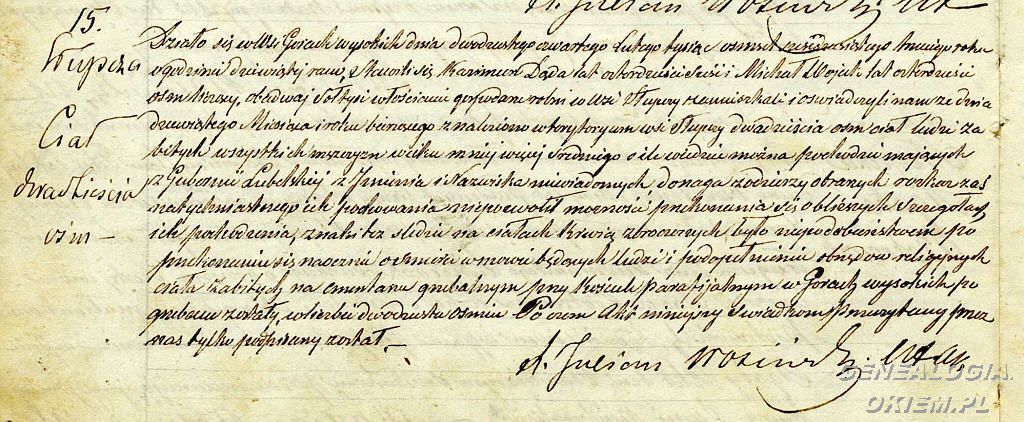 X. Julian Nosiński
15.
Słupcza
Ciał
dwadzieścia
osm –
Działo się w Wsi Gorach wysokich dnia dwudziestego czwartego Lutego tysiąc osmset trzeciego roku
o godzinie dziewiątej rano, Stawili się Kazimierz Dąda lat czterdzieści sześć i Michał Wojcik lat czterdzieści
osm liczący, obadwaj Sołtysi włościanie gospodarze rolni w Wsi Słupczy zamieszkali i oswiadczyli nam ze dnia
dziewiątego Miesiąca i roku bieżącego znaleziono w terytoryum wsi Słupczy dwadzieścia osm ciał ludzi za
bitych wszystkich mężczyzn w wieku mniej więcej średnim o ile wiedzieć można pochodzić mających
z Gubernii Lubelskiej z Imienia i Nazwiska niewiadomych, do naga z odzieży obranych rozkaz zaś
natychmiastowego ich pochowania niepozwolił możności przekonania się o bliższych szczegołach
ich pochodzenia, znaki też śledzić na ciałach krwią zbroczonych było niepodobieństwem po
przekonaniu się naocznie o śmierci w mowie będących ludzi i po dopełnieniu obrzędow religijnych
ciała zabitych na cmentarzu grzebalnym przy Kościele parafijalnym w Gorach wysokich po
grzebane zostały w liczbie dwudziestu osmiu Po czem Akt niniejszy Świadkom przeczytany przez
nas tylko podpisany został. –
X. Julian Nosiński
GENEALOGIA.
OKIEM.PL